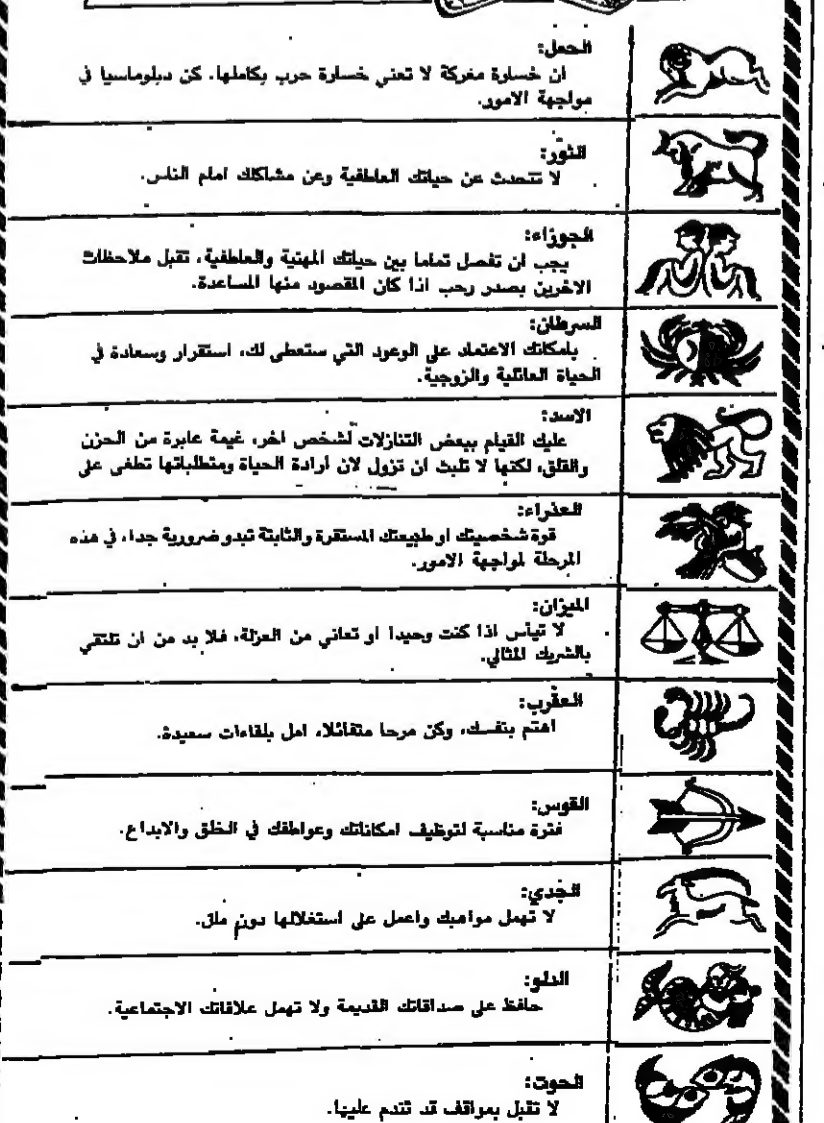 الحمل:
ان خسارة معركة لا تعني خسارة حرب بكاملها. كن دبلوماسيا في
مواجهة الامور.
الثور:
لا تتحدث عن حياتك العاطفية وعن مشاكلك امام الناس.
الجوزاء:
يجب ان تفصل تماما بين حياتك المهنية والعاطفية، تقبل ملاحظات
الاخرين بصدر رحب اذا كان المقصود منها المساعدة.
السرطان:
بامكانك الاعتماد على الوعود التي ستعطى لك، استقرار وسعادة في
الحياة العائلية والزوجية.
الاسد:
عليك القيام ببعض التنازلات لشخص اخر، غيمة عابرة من الحزن
والقلق، لكنها لا تلبث ان تزول لان ارادة الحياة ومتطلباتها تطغى على
العذراء:
قوة شخصيتك او طبيعتك المستقرة والثابتة تبدو ضرورية جدا، في هذه
المرحلة لمواجهة الامور.
الميزان:
لا تيأس اذا كنت وحيدا او تعاني من العزلة، فلا بد من ان تلتقي
بالشريك المثالي.
العقرب:
اهتم بنفسك، وكن مرحا متفائلا، امل بلقاءات سعيدة.
القوس:
فترة مناسبة لتوظيف امكاناتك وعواطفك في الخلق والابداع.
الجدي:
لا تهمل مواهبك واعمل على استغلالها دون ملل.
الدلو:
حافظ على صداقاتك القديمة ولا تهمل علاقاتك الاجتماعية.
الحوت:
لا تقبل بمواقف قد تندم عليها.